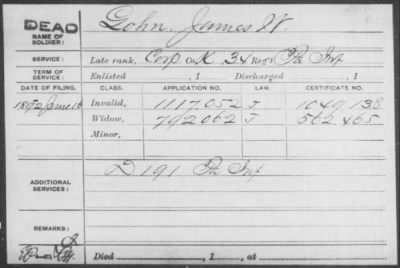 DEAD Lohn, James W.
NAME OF SOLDIER:
SERVICE: Late rank, Corp Co. K, 34 Reg't Pa Inf
TERM OF SERVICE: Enlisted , 1 Discharged , 1
DATE OF FILING. CLASS. APPLICATION NO. LAW. CERTIFICATE NO.
1892 June 16 Invalid, 1117.052 J 1049.138
Widow, 792062 J 562.465
Minor,
ADDITIONAL SERVICES: D 191 Pa Inf
REMARKS:
Died , 1 , at